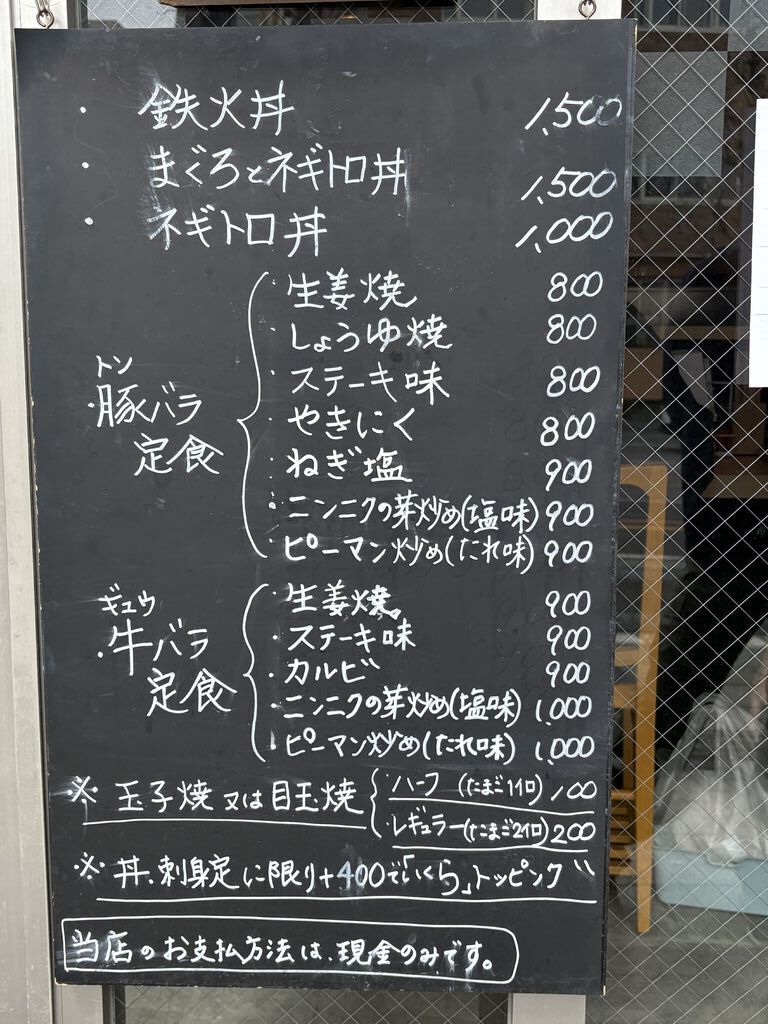 ・ 鉄火丼 1,500
・ まぐろとネギトロ丼 1,500
・ ネギトロ丼 1,000
トン
・豚バラ
定食
・生姜焼 800
・しょうゆ焼 800
・ステーキ味 800
・やきにく 800
・ねぎ塩 900
・ニンニクの芽炒め(塩味) 900
・ピーマン炒め(たれ味) 900
ギュウ
・牛バラ
定食
・生姜焼 900
・ステーキ味 900
・カルビ 900
・ニンニクの芽炒め(塩味) 1,000
・ピーマン炒め(たれ味) 1,000
※ 玉子焼又は目玉焼
・ハーフ (たまご1ケ) 100
・レギュラー(たまご2ケ) 200
※ 丼、刺身定に限り+400で「いくら」トッピング
当店のお支払方法は、現金のみです。